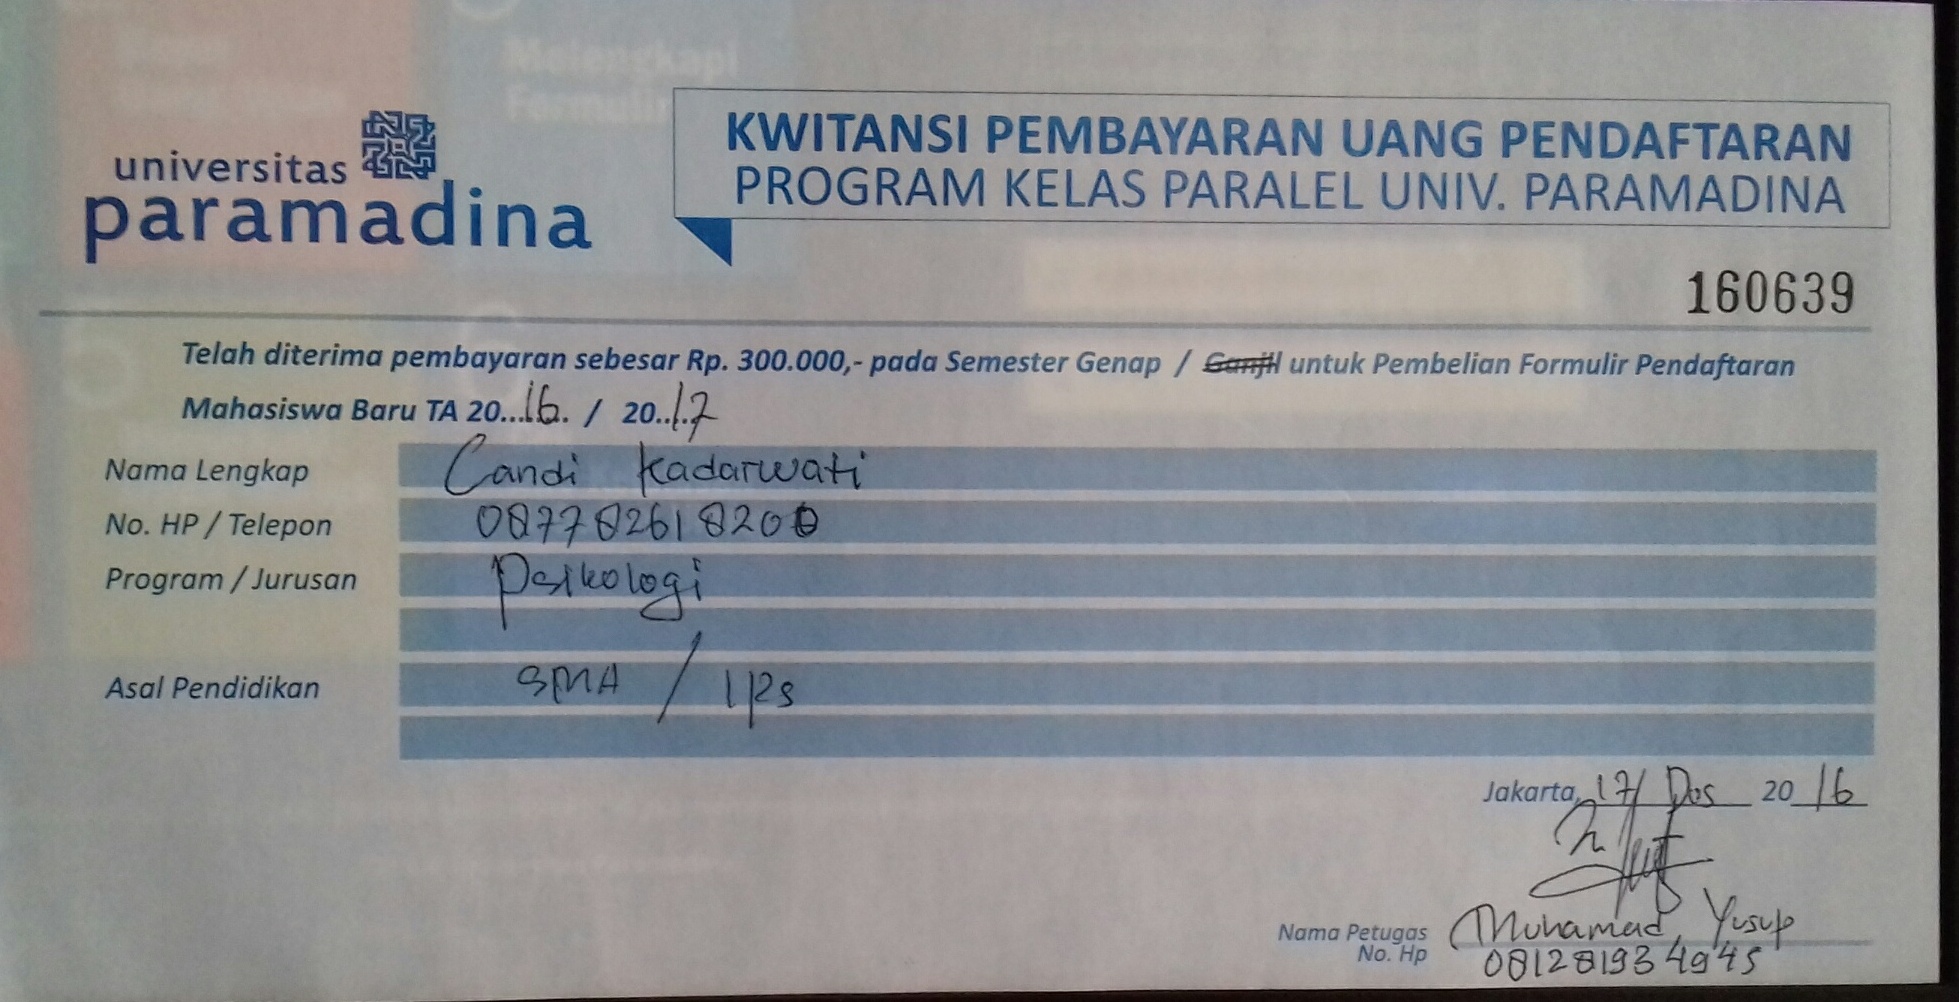 universitas
paramadina
KWITANSI PEMBAYARAN UANG PENDAFTARAN
PROGRAM KELAS PARALEL UNIV. PARAMADINA
160639
Telah diterima pembayaran sebesar Rp. 300.000,- pada Semester Genap / Ganjil untuk Pembelian Formulir Pendaftaran
Mahasiswa Baru TA 20...16. / 20..17
Nama Lengkap Candi Kadarwati
No. HP / Telepon 087782618200
Program / Jurusan Psikologi
Asal Pendidikan SMA / IPS
Jakarta, 17/ Des 20 16
Nama Petugas Muhamad Yusup
No. Hp 081281934945
Melengkapi
Formulir